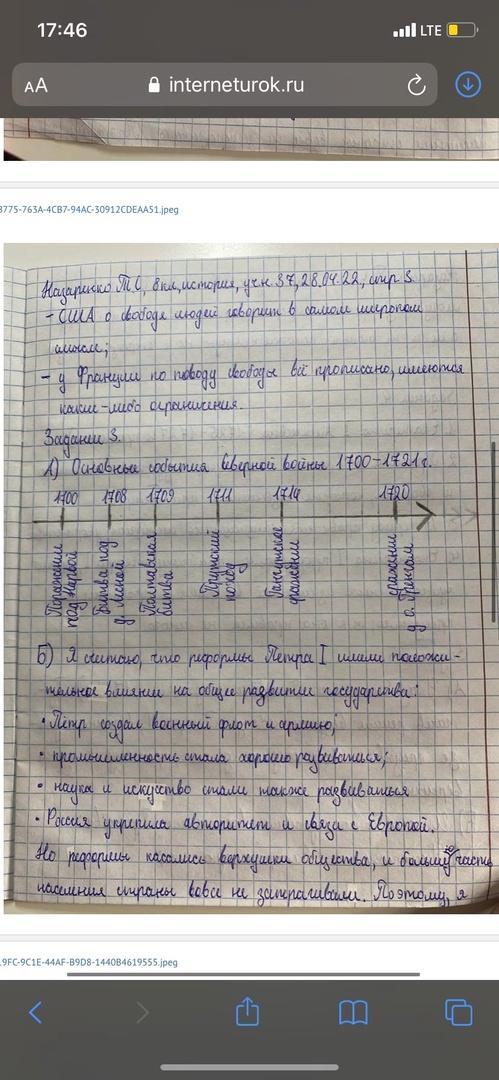 17:46
LTE
AA
interneturok.ru
3775-763A-4CB7-94AC-30912CDEAA51.jpeg
Назаренко Т С, 8 кл, история, уч.н. 37, 28.04.22, стр 3.
- США о свободе людей говорит в самом широком
смысле;
- у Франции по поводу свободы всё прописано, имеются
какие-либо ограничения.
Задание 3.
А) Основные события Северной войны 1700-1721г.
1700 1708 1709 1711 1714 1720
Поражение под Нарвой
Битва под д. Лесной
Полтавская битва
Прутский поход
Гангутское сражение
сражение у о. Гренгам
Б) Я считаю, что реформы Петра I имели положи-
тельное влияние на общее развитие государства:
• Пётр создал военный флот и армию;
• промышленность стала хорошо развиваться;
• наука и искусство стали также развиваться
• Россия укрепила авторитет и связи с Европой.
Но реформы касались верхушки общества, и большую часть
населения страны вовсе не затрагивали. Поэтому, я
19FC-9C1E-44AF-B9D8-1440B4619555.jpeg